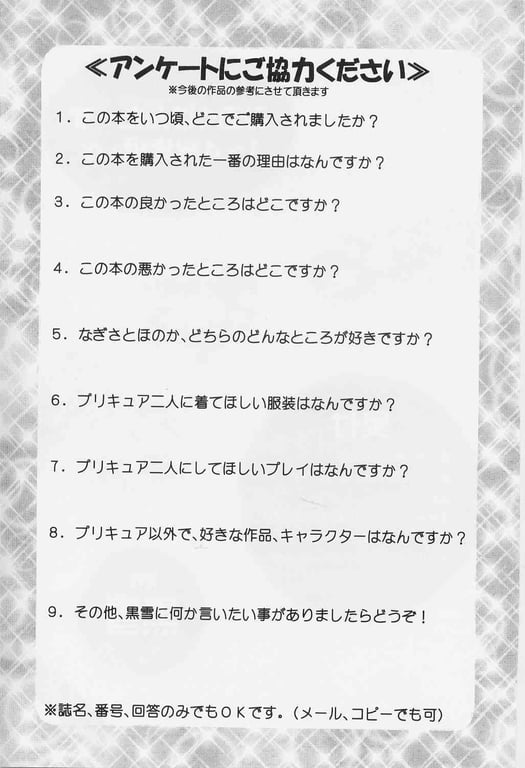 ≪アンケートにご協力ください≫
※今後の作品の参考にさせて頂きます
1．この本をいつ頃、どこでご購入されましたか？
2．この本を購入された一番の理由はなんですか？
3．この本の良かったところはどこですか？
4．この本の悪かったところはどこですか？
5．なぎさとほのか、どちらのどんなところが好きですか？
6．プリキュア二人に着てほしい服装はなんですか？
7．プリキュア二人にしてほしいプレイはなんですか？
8．プリキュア以外で、好きな作品、キャラクターはなんですか？
9．その他、黒雪に何か言いたい事がありましたらどうぞ！
※誌名、番号、回答のみでもOKです。（メール、コピーでも可）